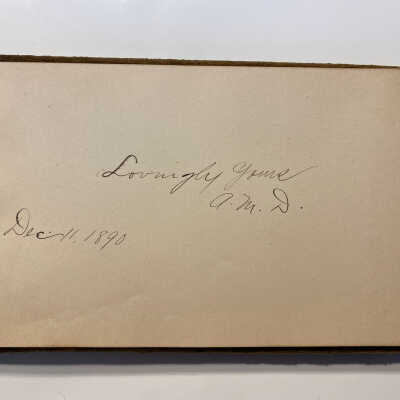 Lovingly Yours
A. M. D.
Dec. 11, 1890